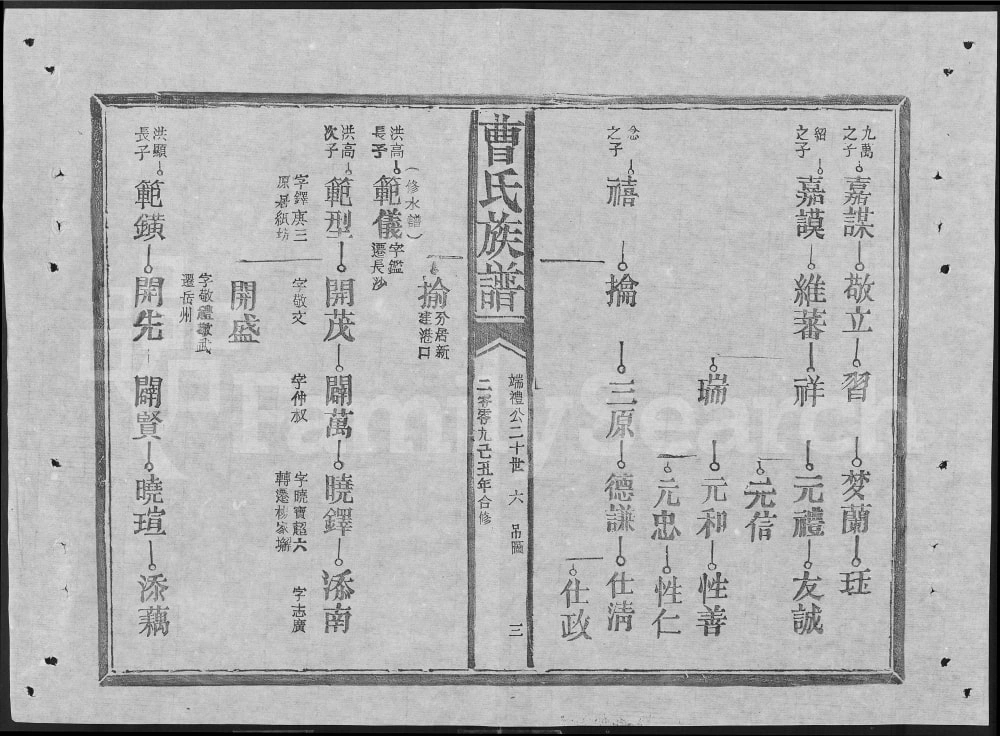 九萬之子 嘉謀 敬立 習 梦蘭 珏
紹之子 嘉謨 維蕃 祥 元禮 友誠
元信
瑞 元和 性善
元忠 性仁
念之子 禧 掄 三原 德謙 仕清
仕政
曹氏族譜
端禮公二十世 六 吊圖 三
二零零九己丑年合修
揄 分居新建港口
(修水譜)
洪高長子 範儀 字鑑遷長沙
洪高次子 範型 開茂 闢萬 曉鐸 添南
字鐸庚三
字敬文 字仲权 字曉寶超六 字志廣
開盛
字敬禮
遷岳州
洪顯長子 範鐄 開先 闢賢 曉瑄 添藕
FamilySearch